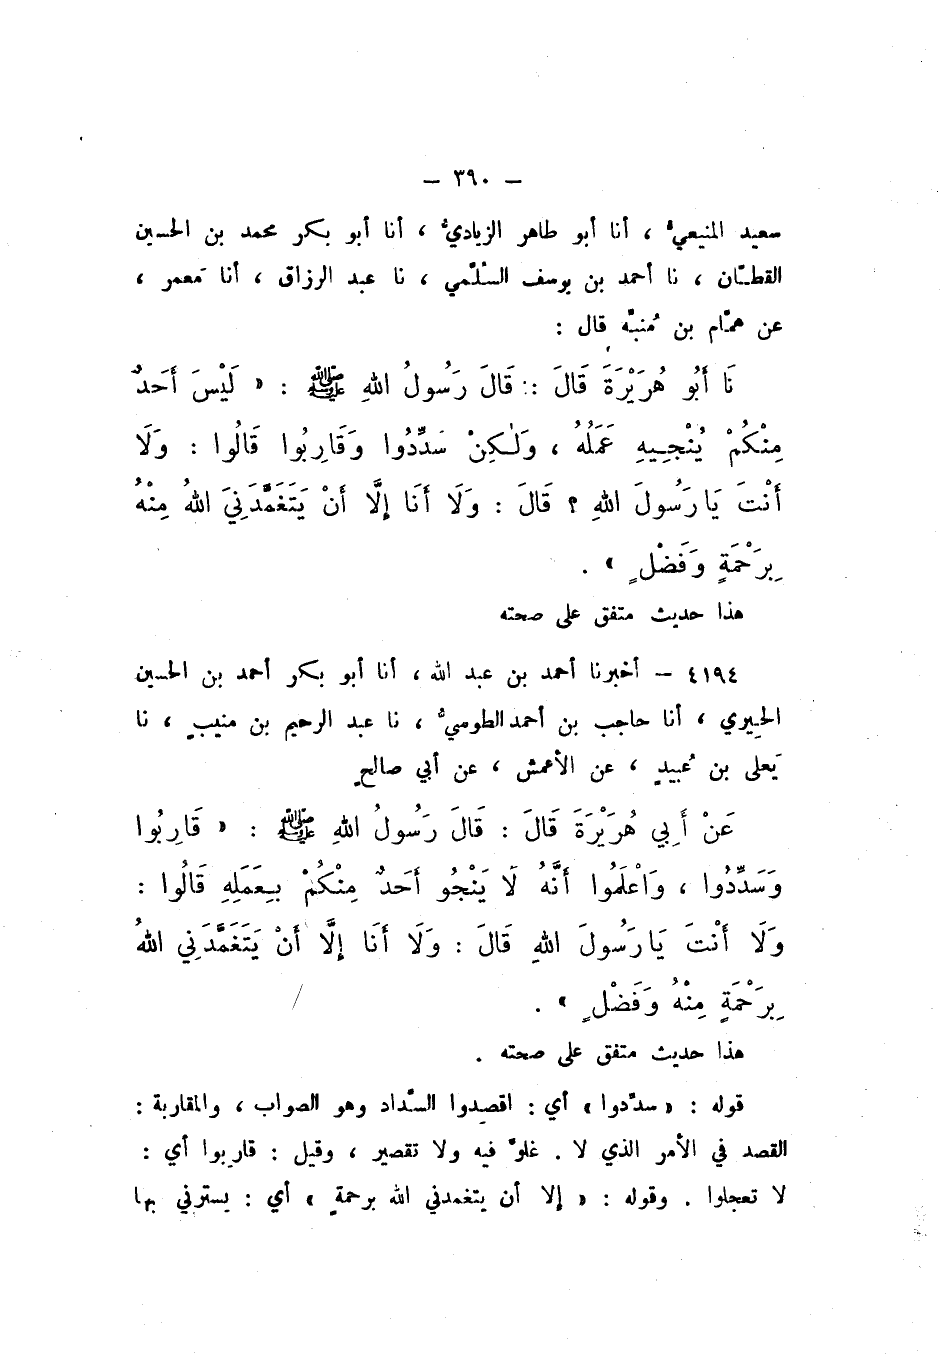 — ٣٩٠ —
سعيد المنيعيُّ ، أنا أبو طاهر الزياديُّ ، أنا أبو بكر محمد بن الحسين
القطـّان ، نا أحمد بن يوسف السُّلَمي ، نا عبد الرزاق ، أنا مَعمر ،
عن همّام بن مُنبّه قال :
نَا أَبُو هُرَيْرَةَ قَالَ : قَالَ رَسُولُ اللهِ ﷺ : « لَيْسَ أَحَدٌ
مِنْكُمْ يُنْجِيهِ عَمَلُهُ ، وَلٰكِنْ سَدِّدُوا وَقَارِبُوا قَالُوا : وَلَا
أَنْتَ يَا رَسُولَ اللهِ ؟ قَالَ : وَلَا أَنَا إِلَّا أَنْ يَتَغَمَّدَنِيَ اللهُ مِنْهُ
بِرَحْمَةٍ وَفَضْلٍ » .
هذا حديث متفق على صحته
٤١٩٤ – أخبرنا أحمد بن عبد الله ، أنا أبو بكر أحمد بن الحسين
الحِيري ، أنا حاجب بن أحمد الطوسيُّ ، نا عبد الرحيم بن منيبٍ ، نا
يَعلى بن عُبيدٍ ، عن الأعمش ، عن أبي صالحٍ
عَنْ أَبِي هُرَيْرَةَ قَالَ : قَالَ رَسُولُ اللهِ ﷺ : « قَارِبُوا
وَسَدِّدُوا ، وَاعْلَمُوا أَنَّهُ لَا يَنْجُو أَحَدٌ مِنْكُمْ بِعَمَلِهِ قَالُوا :
وَلَا أَنْتَ يَا رَسُولَ اللهِ قَالَ : وَلَا أَنَا إِلَّا أَنْ يَتَغَمَّدَنِي اللهُ
بِرَحْمَةٍ مِنْهُ وَفَضْلٍ » .
هذا حديث متفق على صحته .
قوله : « سدّدوا » أي : اقصِدوا السَّداد وهو الصواب ، والمقاربة :
القصد في الأمر الذي لا . غلوّ فيه ولا تقصير ، وقيل : قاربوا أي :
لا تعجلوا . وقوله : « إلا أن يتغمدني الله برحمةٍ » أي : يسترني بها